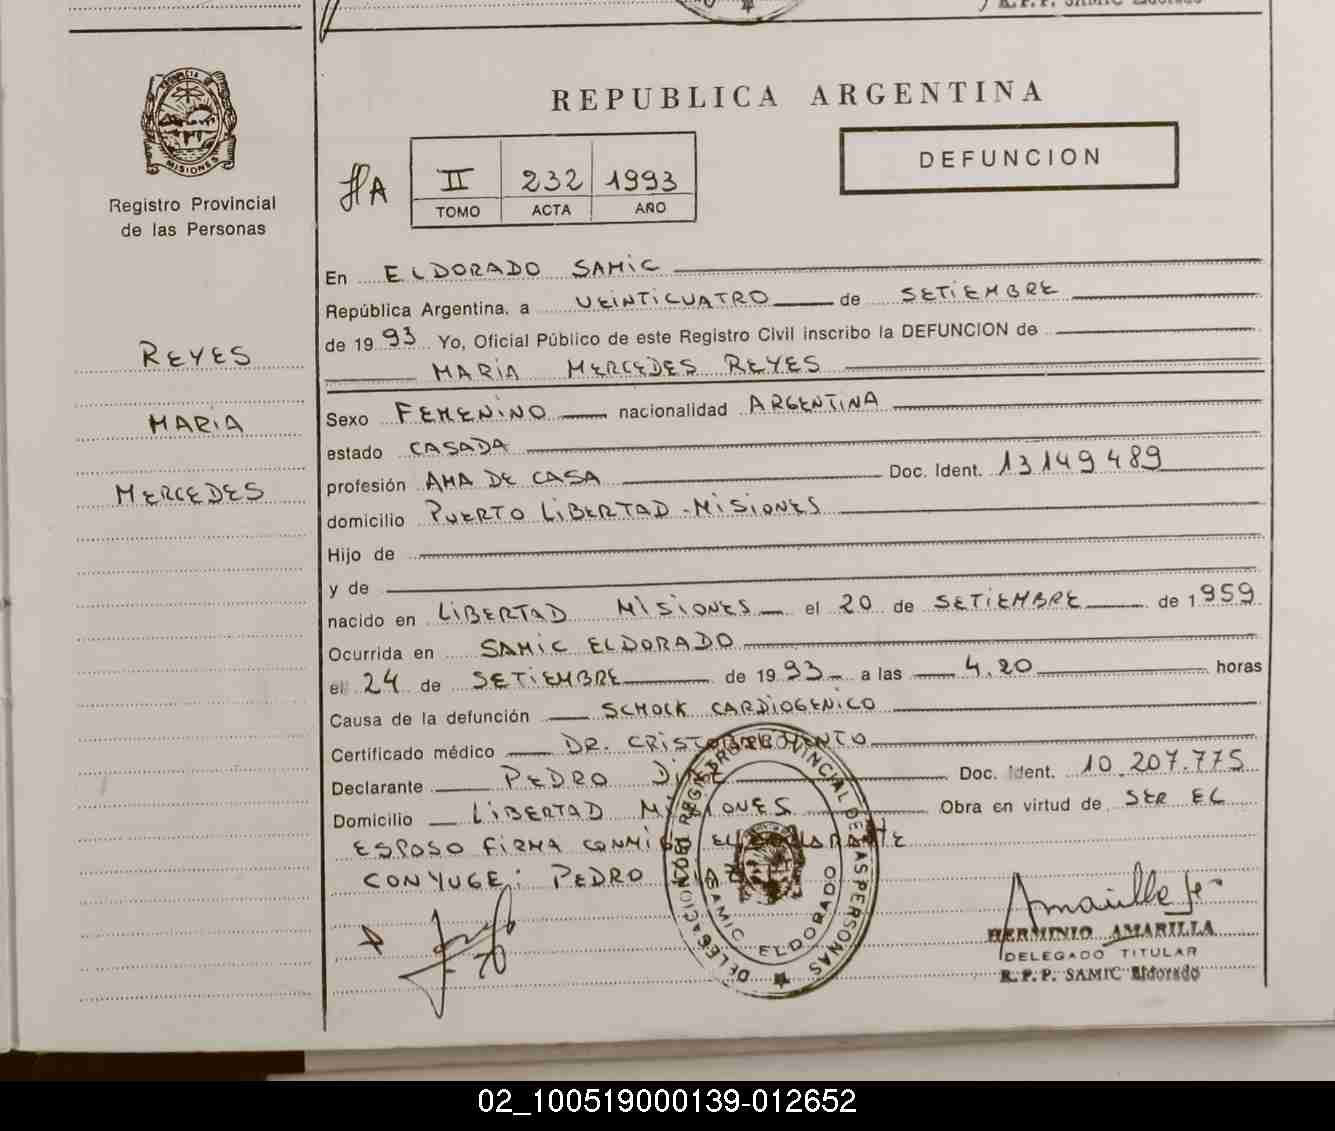 R.P.P. SAMIC Eldorado
PROVINCIA
MISIONES
Registro Provincial
de las Personas
REPUBLICA ARGENTINA
DEFUNCION
II 232 1993
TOMO ACTA AÑO
En ELDORADO SAMIC
República Argentina, a VEINTICUATRO de SETIEMBRE
de 1993 Yo, Oficial Público de este Registro Civil inscribo la DEFUNCION de
MARIA MERCEDES REYES
REYES
MARIA
MERCEDES
Sexo FEMENINO nacionalidad ARGENTINA
estado CASADA
profesión AMA DE CASA Doc. Ident. 13149489
domicilio PUERTO LIBERTAD - MISIONES
Hijo de
y de
nacido en LIBERTAD MISIONES el 20 de SETIEMBRE de 1959
Ocurrida en SAMIC ELDORADO
el 24 de SETIEMBRE de 1993 a las 4,20 horas
Causa de la defunción SCHOCK CARDIOGENICO
Certificado médico DR.
Declarante PEDRO Doc. Ident. 10.207.775
Domicilio LIBERTAD MISIONES Obra en virtud de SER EL
ESPOSO FIRMA CONMIGO EL DECLARANTE
CONYUGE: PEDRO DIAZ
DELEGACION REGISTRO PROVINCIAL DE LAS PERSONAS
SAMIC ELDORADO
HERMINIO AMARILLA
DELEGADO TITULAR
R.P.P. SAMIC Eldorado
02_100519000139-012652